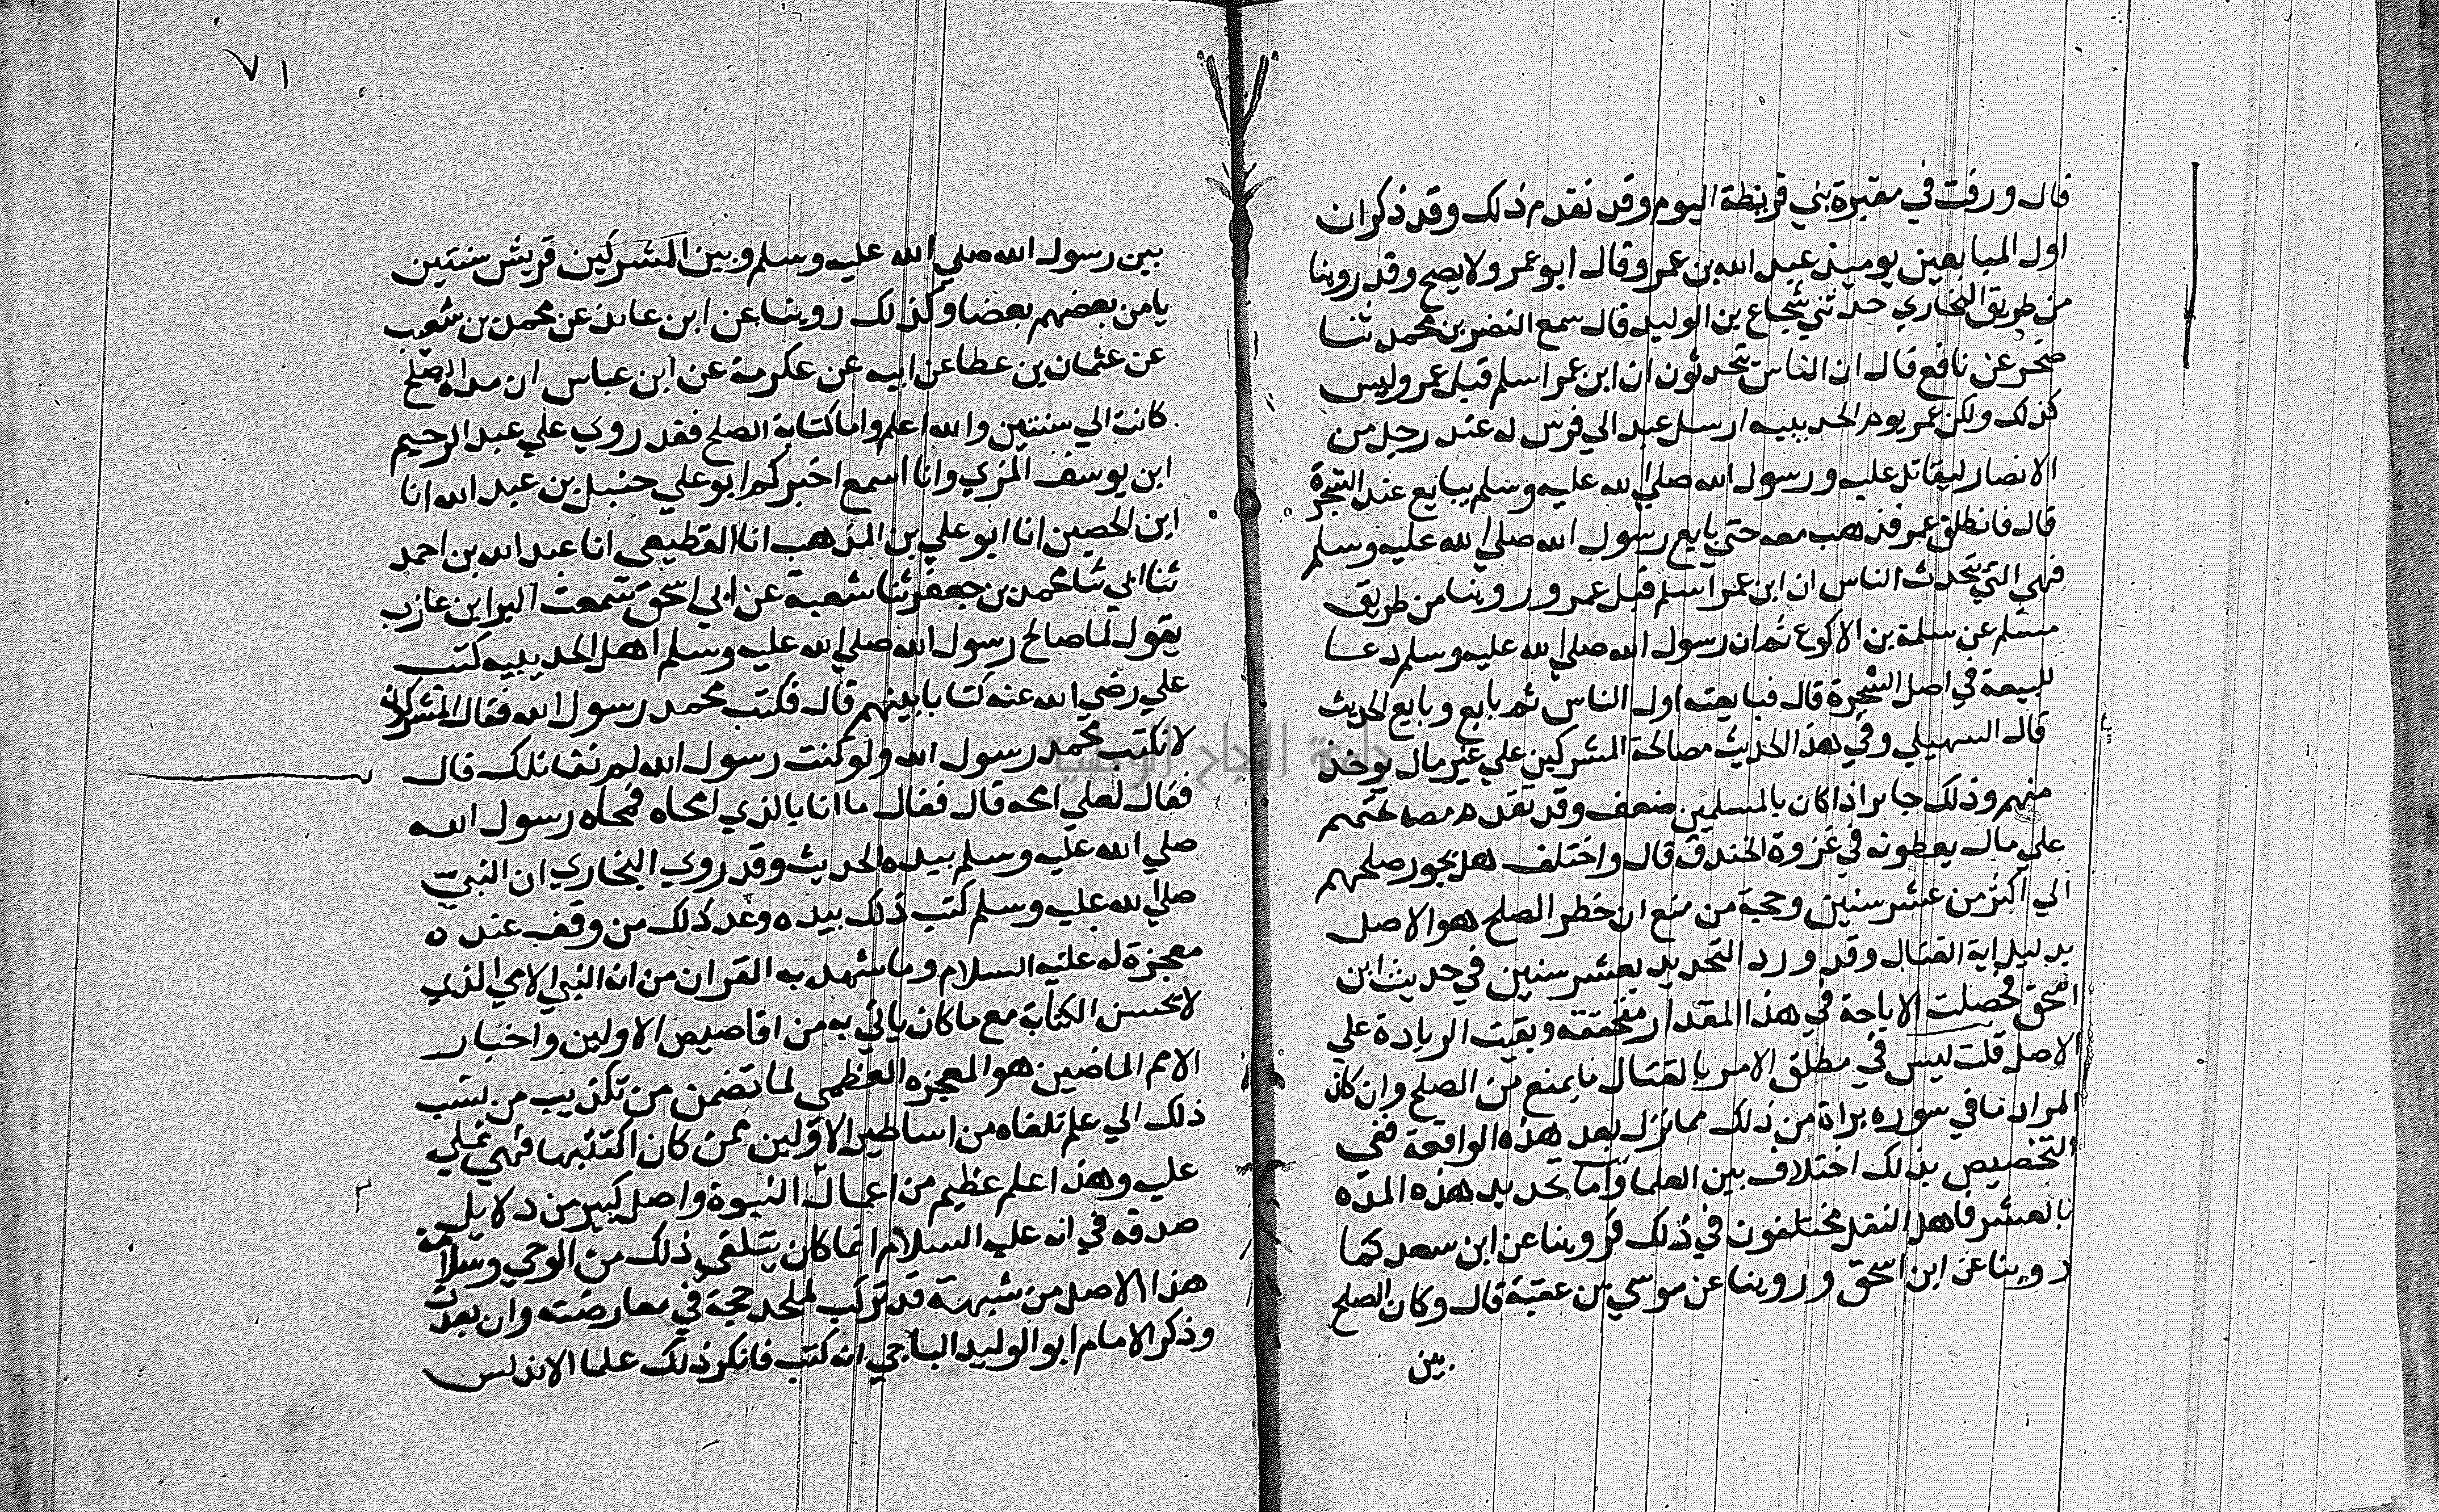 قال ورفت في مقبرة بني قريظة اليوم وقد تقدم ذلك وقد ذكر ان
اول المبايعين يوميذ عبد الله بن عمر وقال ابو عمر ولا يصح وقد روينا
من طريق البخاري حدثني شجاع بن الوليد قال سمع النضر بن محمد ثنا
صخر عن نافع قال ان الناس تحدثون ان ابن عمر اسلم قبل عمر وليس
كذلك ولكن عمر يوم الحديبيه ارسل عبد الي فرس له عند رجل من
الانصار ليقاتل عليه ورسول الله صلي الله عليه وسلم يبايع عند الشجرة
قال فانطلق عمر فذهب معه حتي بايع رسول الله صلي الله عليه وسلم
فهي التي يتحدث الناس ان ابن عمر اسلم قبل عمر وروينا من طريق
مسلم عن سلمة بن الاكوع ثم ان رسول الله صلي الله عليه وسلم دعا
للبيعة في اصل الشجرة قال فبايعته اول الناس ثم بايع وبايع الحديث
قال السهيلي وفي هذا الحديث مصالحة المشركين علي غير مال يوخذ
منهم وذلك جايز اذا كان بالمسلمين ضعف وقد تقدم مصالحتهم
علي مال يعطونه في غزوة الخندق قال واختلف هل يجوز صلحهم
الي اكثر من عشر سنين وحجة من منع ان خطر الصلح هو الاصل
بدليل اية القتال وقد ورد التحديد بعشر سنين في حديث ابن
اسحق فحصلت الاباحة في هذا المقدار متحققه وبقيت الزيادة علي
الاصل قلت ليس في مطلق الامر بالقتال ما يمنع من الصلح وان كان
المراد ما في سوره براة من ذلك مما نزل بعد هذه الواقعة ففي
التخصيص بذلك اختلاف بين العلما واما تحديد هذه المده
بالعشر فاهل النقل مختلفون في ذلك فروينا عن ابن سعد كما
روينا عن ابن اسحق وروينا عن موسي بن عقبة قال وكان الصلح
بين
٧١
بين رسول الله صلي الله عليه وسلم وبين المشركين قريش سنتين
يامن بعضهم بعضا وكذلك روينا عن ابن عايذ عن محمد بن شعيب
عن عثمان بن عطا عن ابيه عن عكرمة عن ابن عباس ان مدة الصلح
كانت الي سنتين والله اعلم واما كتابة الصلح فقد روي علي عبد الرحيم
ابن يوسف المزي وانا اسمع اخبركم ابو علي حنبل بن عبد الله انا
ابن الحصين انا ابو علي بن المذهب انا القطيعي انا عبد الله بن احمد
ثنا ابي ثنا محمد بن جعفر ثنا شعبة عن ابي اسحق سمعت البرا بن عازب
يقول لما صالح رسول الله صلي الله عليه وسلم اهل الحديبيه كتب
علي رضي الله عنه كتابا بينهم قال فكتب محمد رسول الله فقال المشركون
لا تكتب محمد رسول الله ولو كنت رسول الله لم نقاتلك قال
فقال لعلي امحه قال فقال ما انا بالذي امحاه فمحاه رسول الله
صلي الله عليه وسلم بيده الحديث وقد روي البخاري ان النبي
صلي الله عليه وسلم كتب ذلك بيده وعد ذلك من وقف عنده
معجزة له عليه السلام وما شهد به القران من انه النبي الامي الذي
لا يحسن الكتابة مع ما كان ياتي به من اقاصيص الاولين واخبار
الامم الماضين هو المعجزه العظمي لما تضمن من تكذيب من نسب
ذلك الي علم تلقاه من اساطير الاولين ممن كان اكتتبها فهي تملي
عليه وهذا علم عظيم من اعمال النبوة واصل كبير من دلايل
صدقه في انه عليه السلام انما كان يتلقي ذلك من الوحي وسلامة
هذا الاصل من شبهة قد تركب لملحد حجة في معارضته وان بعدت
وذكر الامام ابو الوليد الباجي انه كتب فانكر ذلك علما الاندلس
جامعة النجاح الوطنية